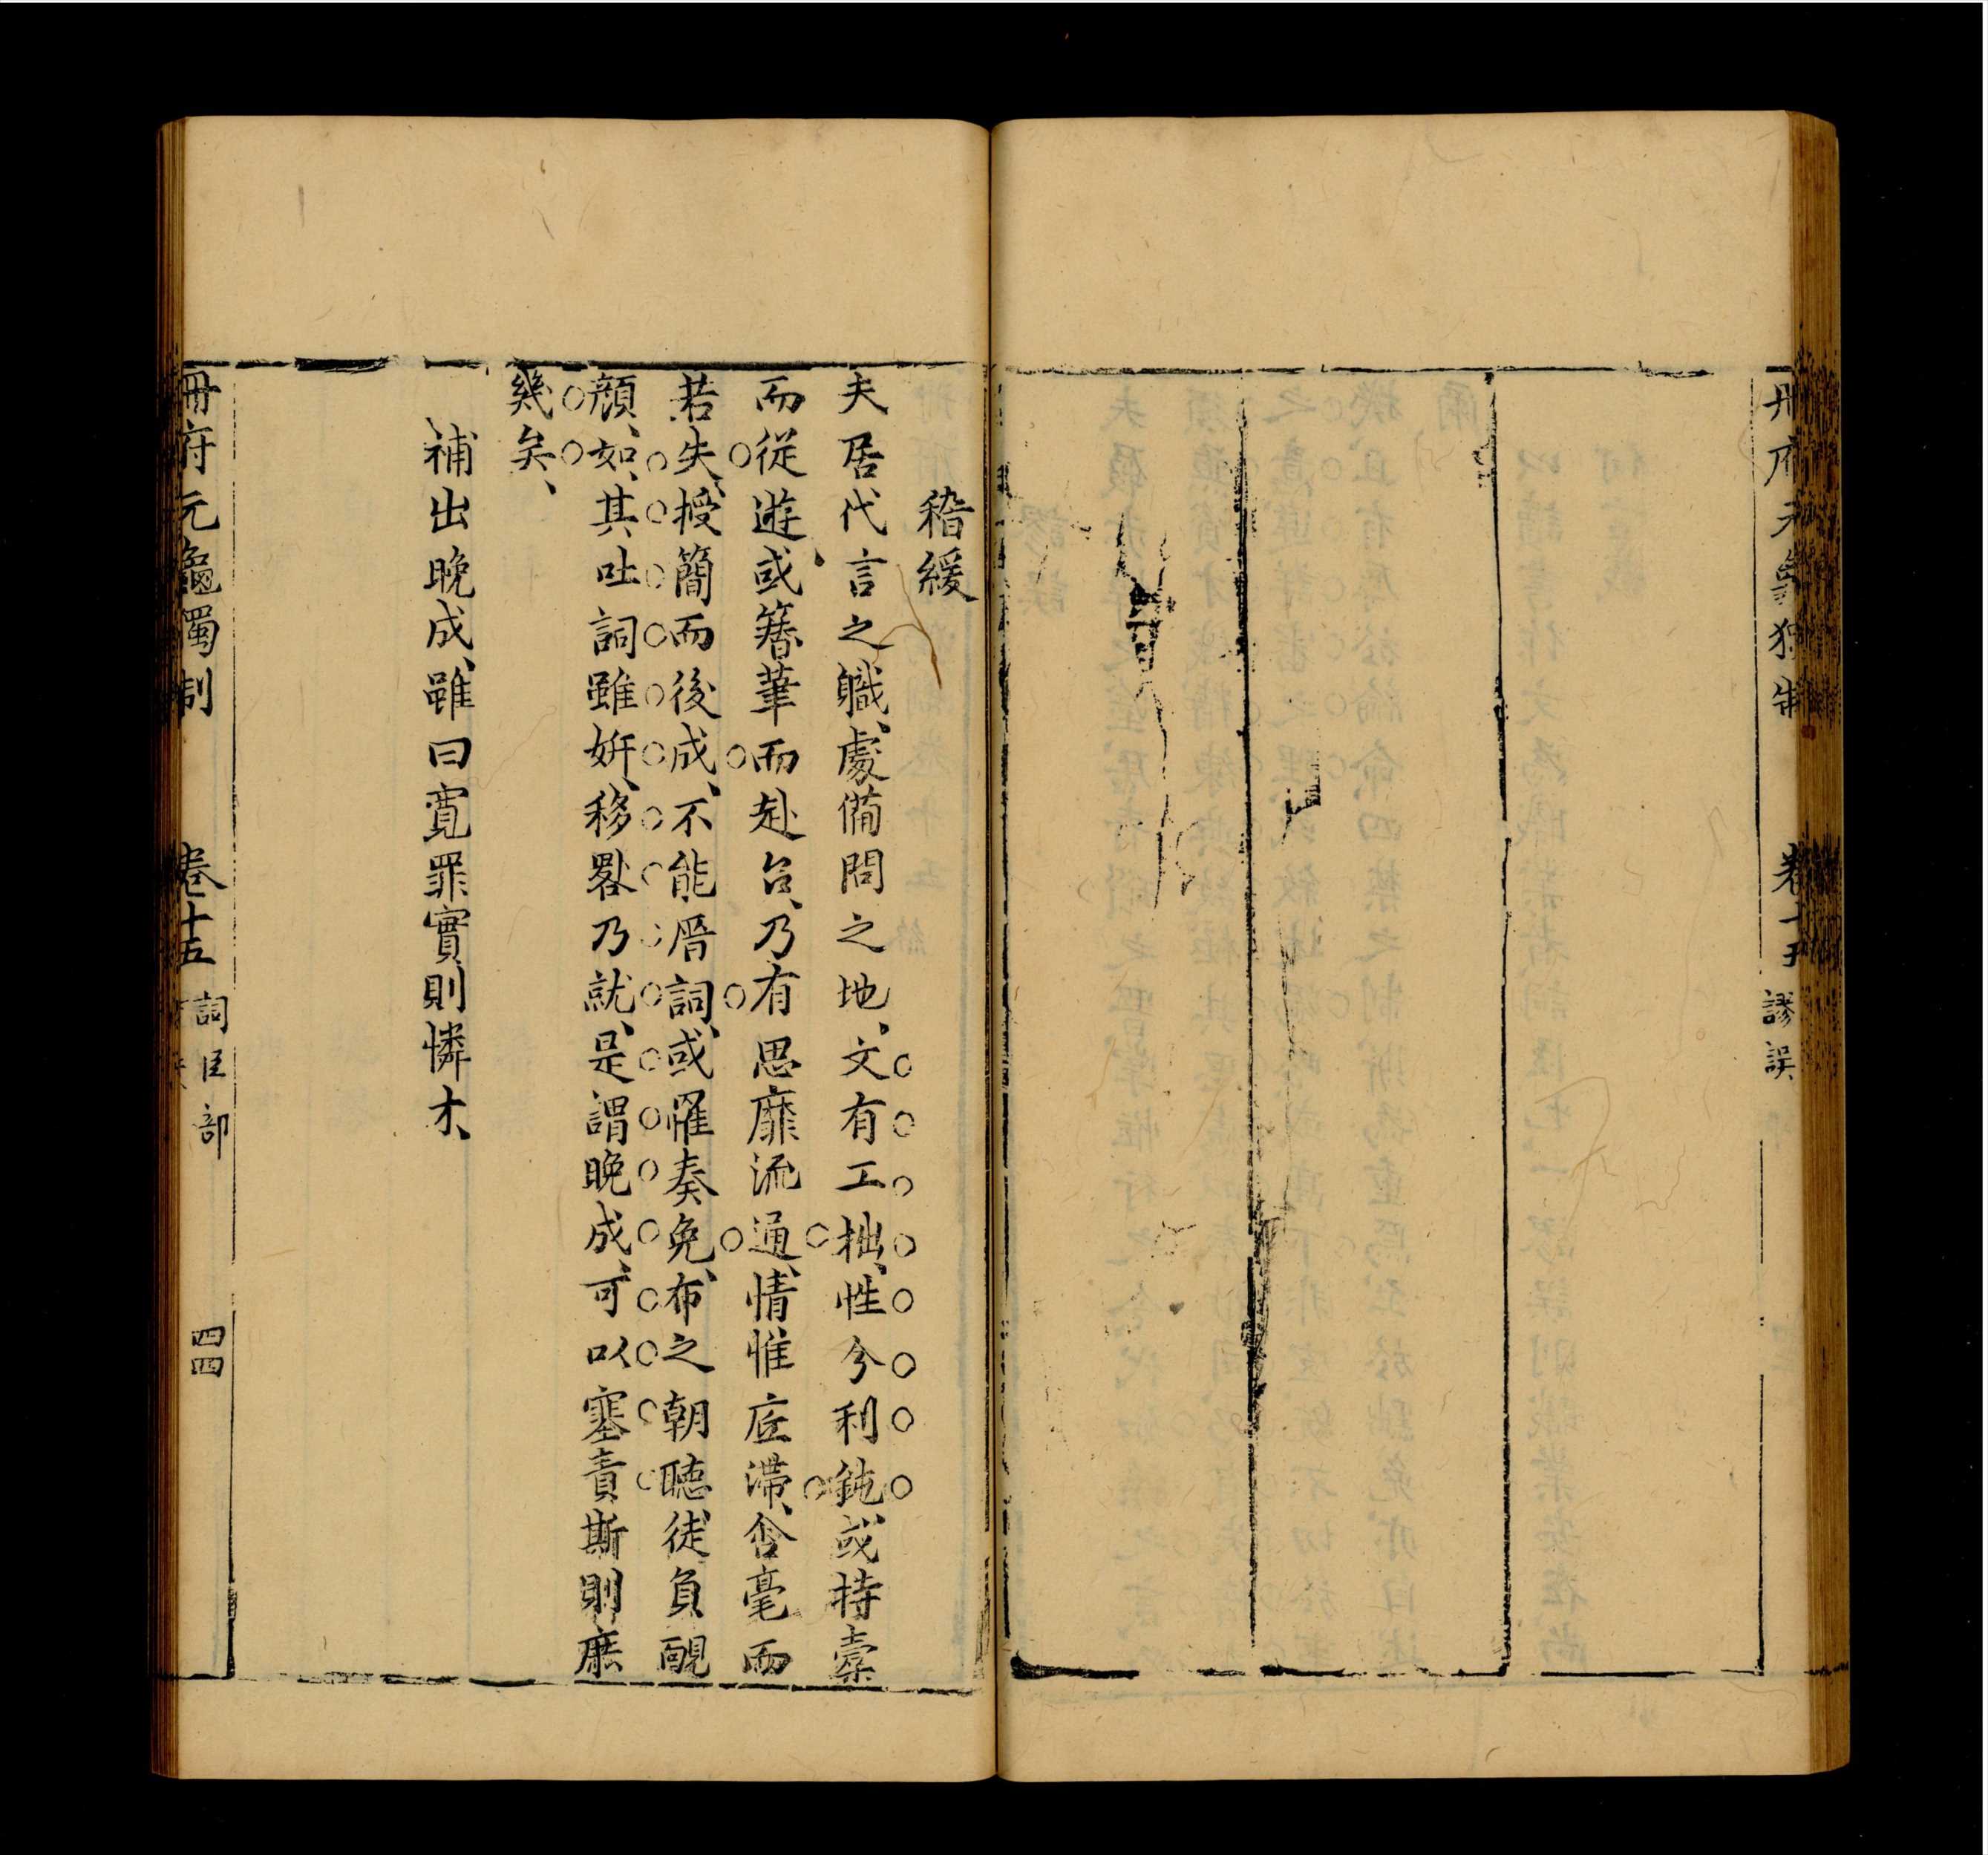 冊府元龜獨制
卷十五
謬誤
稽緩
夫居代言之職、處備問之地、文有工拙、性兮利鈍、或持橐
而從遊、或簪筆而赴召、乃有思靡流通、情惟底滯、含毫而
若失、授簡而後成、不能屑詞、或罹奏免、布之朝聽、徒負靦
顏、如其吐詞雖姸、移晷乃就、是謂晚成、可以塞責斯則庶
幾矣、
補出晚成、雖曰寬罪實則憐才、
冊府元龜獨制
卷十五
詞臣部
四四